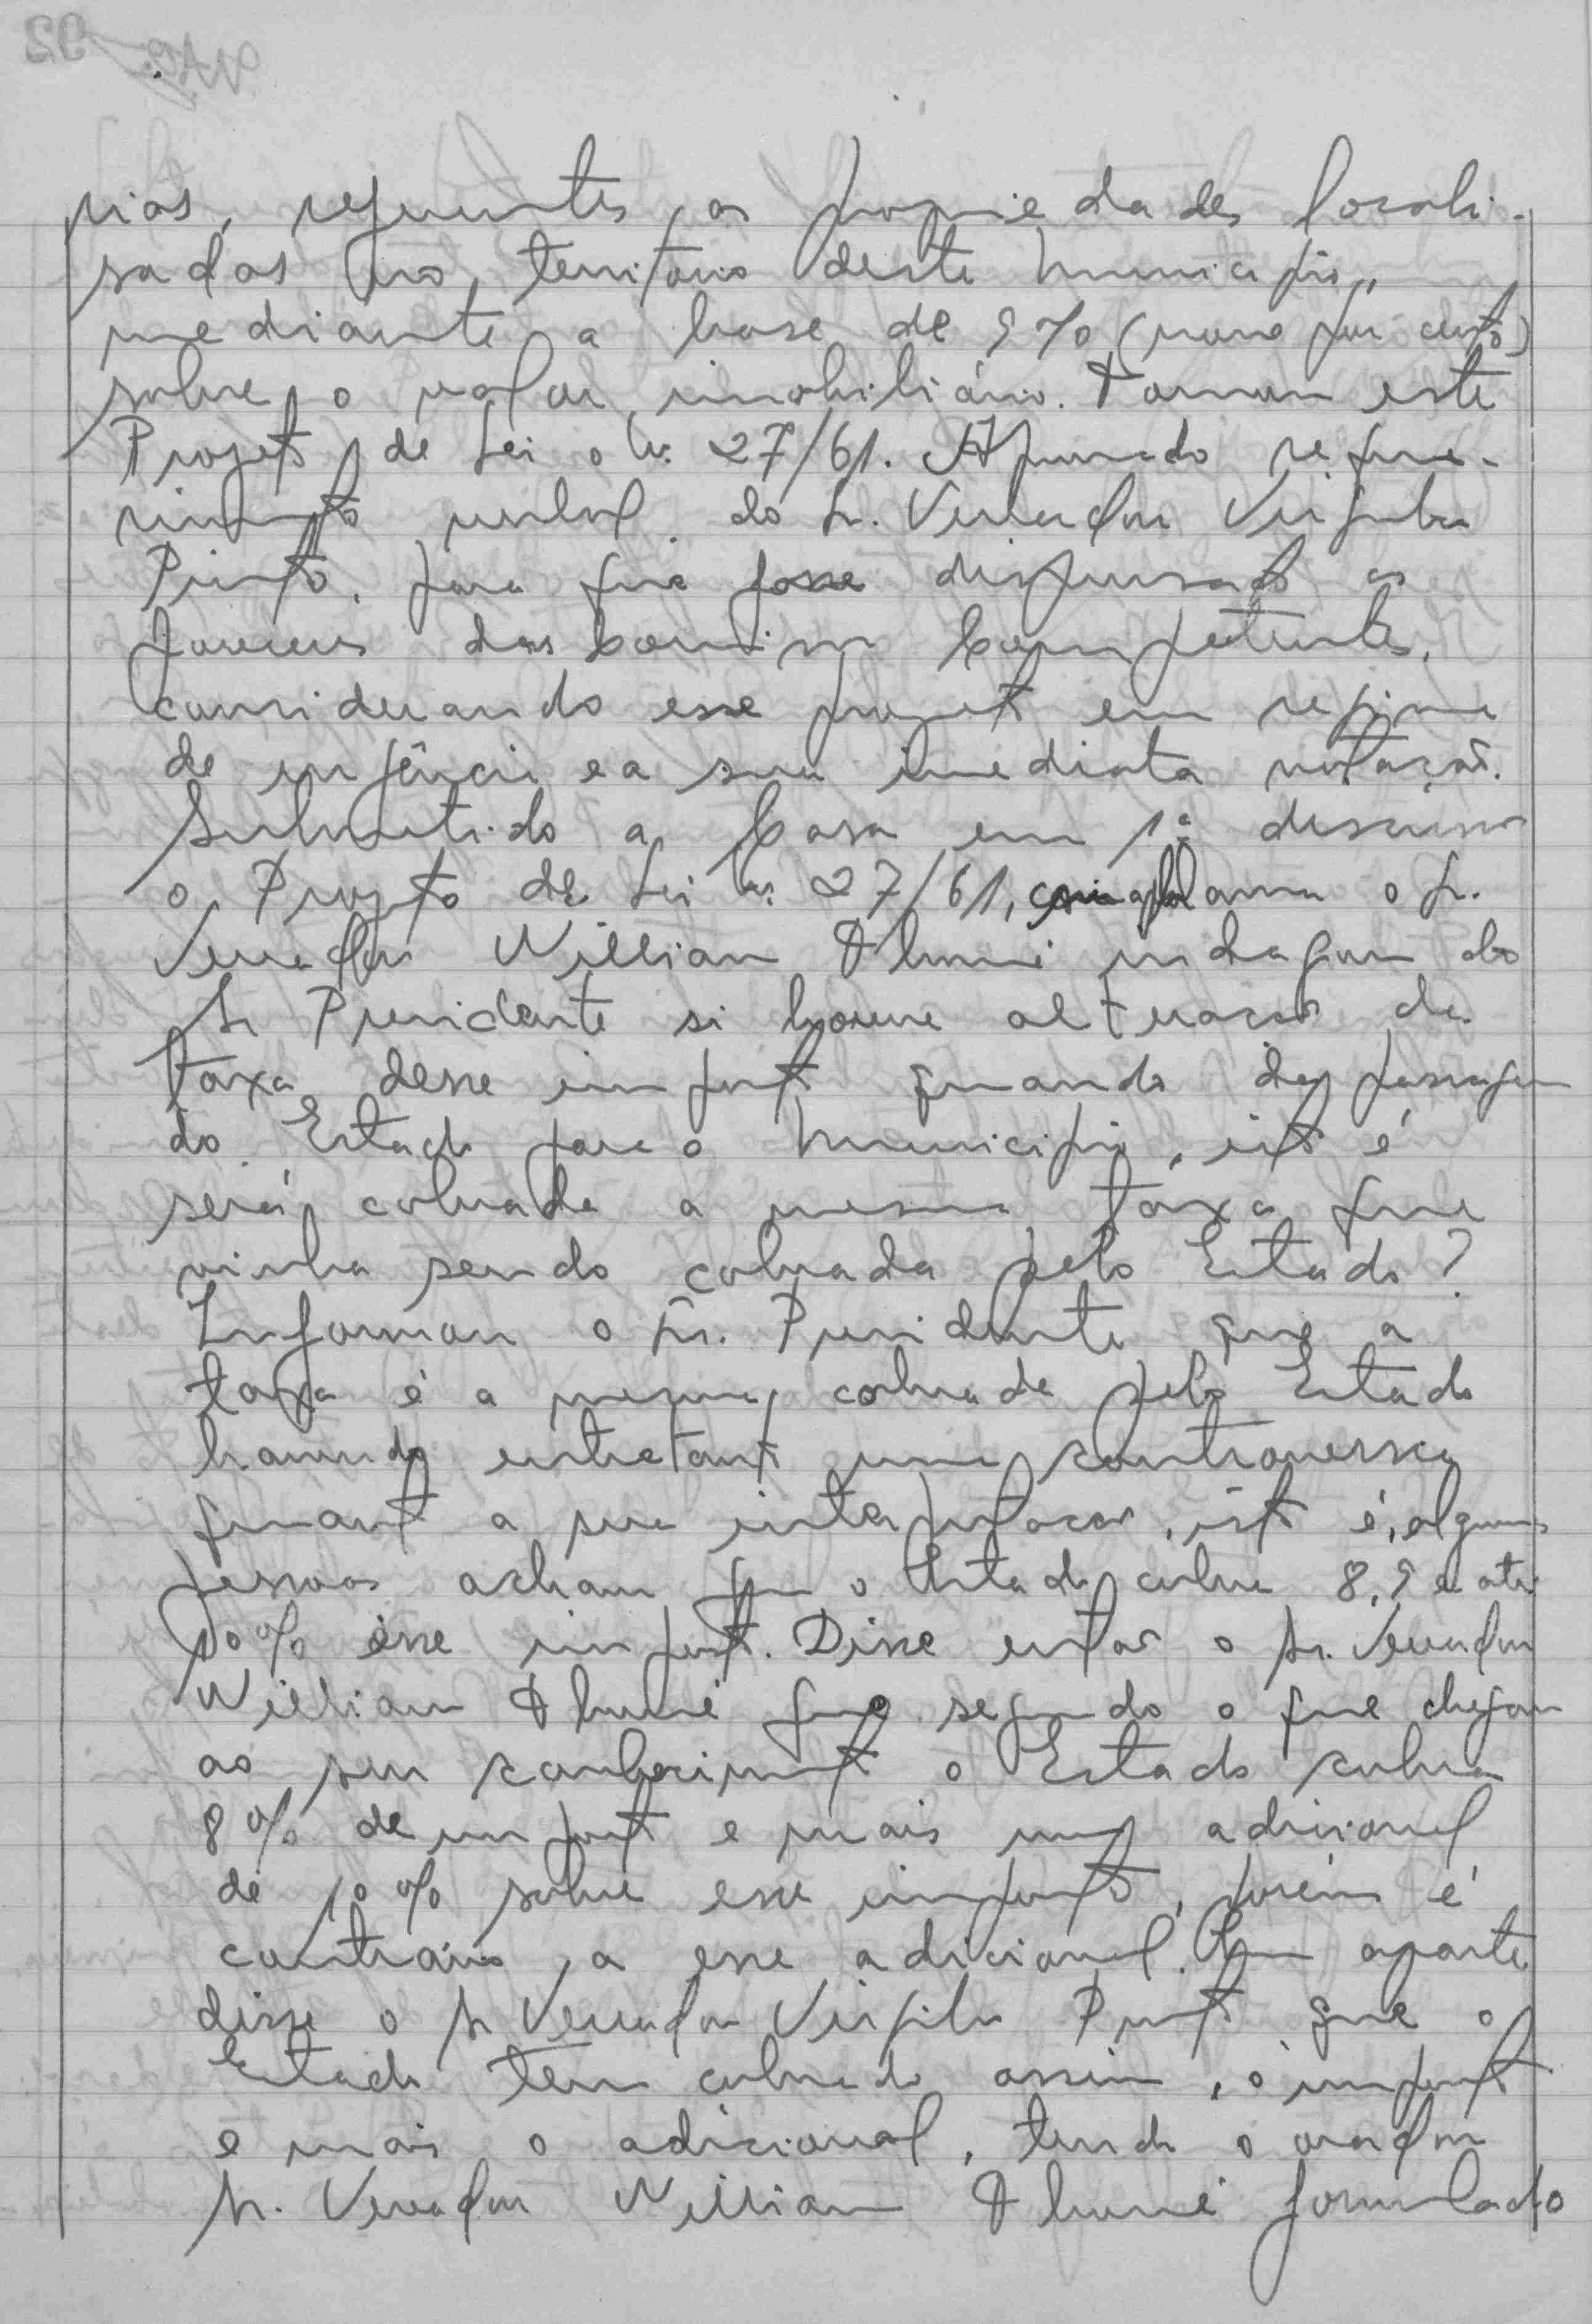 rios, referentes as propriedades locali-
sadas no territorio deste Municipio,
mediante a base de 9% (nove por cento)
sobre o valor imobiliário. Tomou este
Projeto de Lei o N. 27/61. Aprovado reque-
rimento verbal do Sr. Vereador Virgilio
Pinto, para que fosse dispensado os
pareceres das Comissões Competentes,
considerando esse projeto em regime
de urgência e a sua imediata votação.
Submetido a Casa em 1ª discussão
o Projeto de Lei n. 27/61, com a palavra o Sr.
Vereador Willian Thumé indagou do
Sr Presidente si houve alteração da
taxa desse imposto quando da passagem
do Estado para o Municipio, isto é
será cobrada a mesma taxa que
vinha sendo cobrada pelo Estado?
Informou o Sr. Presidente que a
taxa é a mesma cobrada pelo Estado
havendo entretanto uma controversia
quanto a sua interpretação, isto é, algumas
pessoas acham que o Estado cobra 8, 9 e até
10% êsse imposto. Disse então o Sr. Vereador
Willian Thumé que segundo o que chegou
ao seu conhecimento o Estado cobra
8% de imposto e mais um adicional
de 10% sobre esse imposto, porém é
contrário a esse adicional. Em aparte
disse o Sr Vereador Virgilio Pinto que o
Estado tem cobrado assim, o imposto
e mais o adicional, tendo o orador
Sr. Vereador Willian Thumé formulado